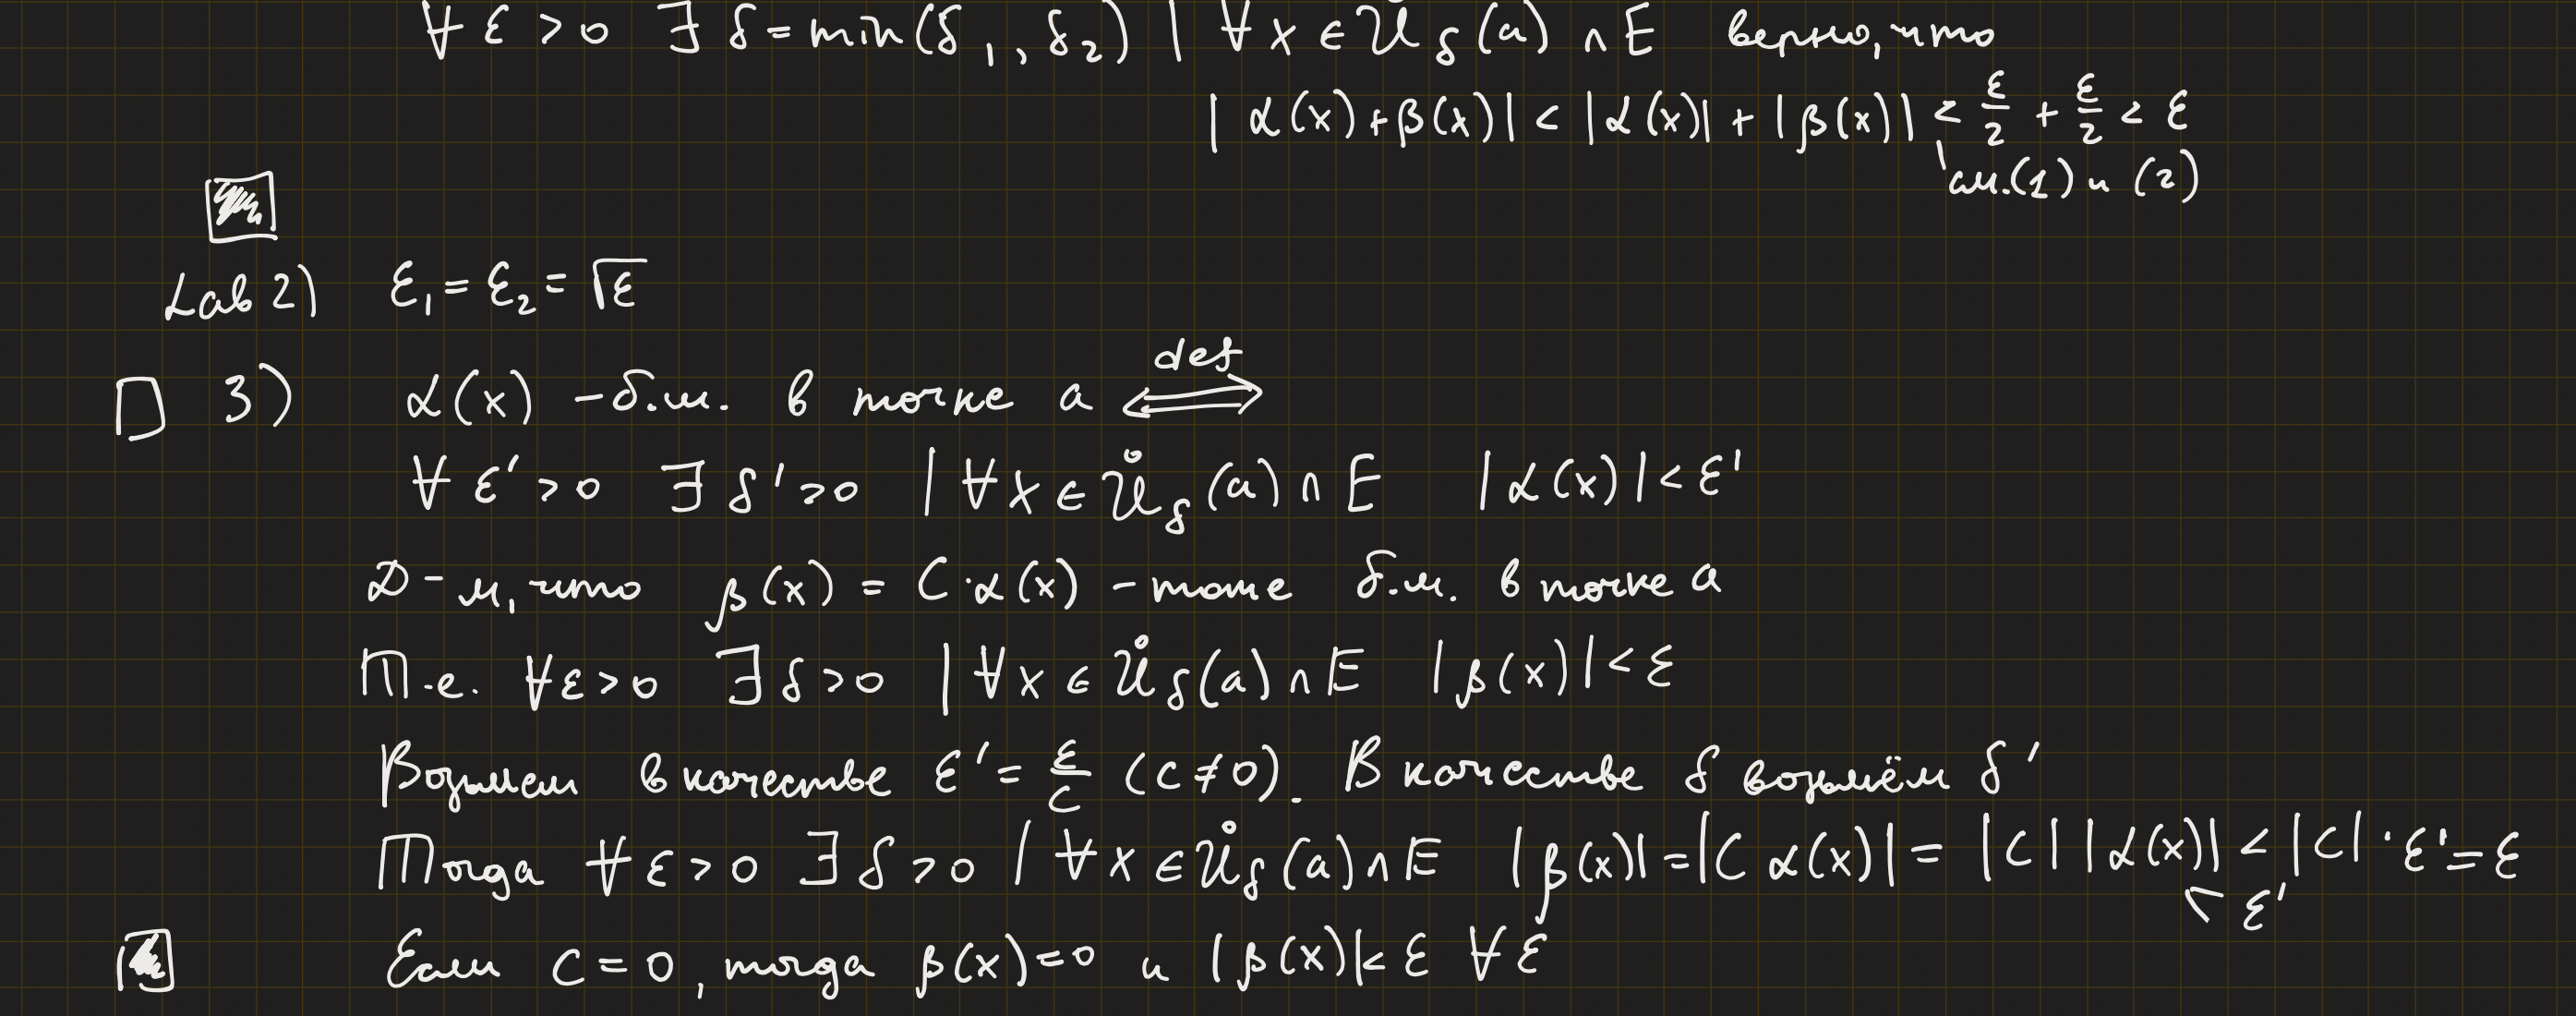 ∀ ε > 0 ∃ δ = min(δ₁, δ₂) | ∀ x ∈ U_δ(a) ∩ E верно, что
| α(x) + β(x)| < |α(x)| + |β(x)| < ε/2 + ε/2 < ε
см.(1) и (2)
Lab 2) ε₁ = ε₂ = √ε
3) α(x) – б.м. в точке a ⟺ def
∀ ε' > 0 ∃ δ' > 0 | ∀ x ∈ Ů_δ(a) ∩ E |α(x)| < ε'
Д-м, что β(x) = C·α(x) – тоже б.м. в точке a
Т.е. ∀ ε > 0 ∃ δ > 0 | ∀ x ∈ Ů_δ(a) ∩ E |β(x)| < ε
Возьмем в качестве ε' = ε/C (C ≠ 0). В качестве δ возьмём δ'
Тогда ∀ ε > 0 ∃ δ > 0 | ∀ x ∈ Ů_δ(a) ∩ E |β(x)| = |C α(x)| = |C| |α(x)| < |C| · ε' = ε
< ε'
Если C = 0, тогда β(x) = 0 и |β(x)| < ε ∀ ε